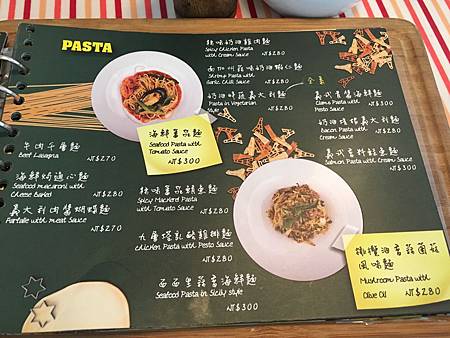 PASTA
牛肉千層麵
Beef Lasagna
NT$270
海鮮焗通心麵
Seafood macaroni with
Cheese Baked
NT$240
義大利肉醬蝴蝶麵
Farfalle with meat Sauce
NT$270
海鮮蕃茄麵
Seafood Pasta with
Tomato Sauce
NT$300
辣味奶油雞肉麵
Spicy Chicken Pasta
with Cream Sauce
NT$280
南加州蒜味奶油蝦仁麵
Shrimp Pasta with
Garlic Chili Sauce
NT$250
奶油時蔬義大利麵
Pasta in Vegetarian
Style
辣味蕃茄鯖魚麵
Spicy Mackerel Pasta
with Tomato Sauce
NT$280
九層塔乳酪雞排麵
Chicken Pasta with Pesto Sauce
NT$280
西西里蒜香海鮮麵
Seafood Pasta in Sicily Style
NT$300
全素
義式青醬海鮮麵
Clams Pasta with
Pesto Sauce
NT$300
奶油培根義大利麵
Bacon Pasta with
Cream Sauce
NT$280
鮭魚麵
Salmon Pasta with Cream Sauce
NT$300
橄欖油香蒜菌菇
風味麵
Mushroom Pasta with
Olive Oil
NT$280